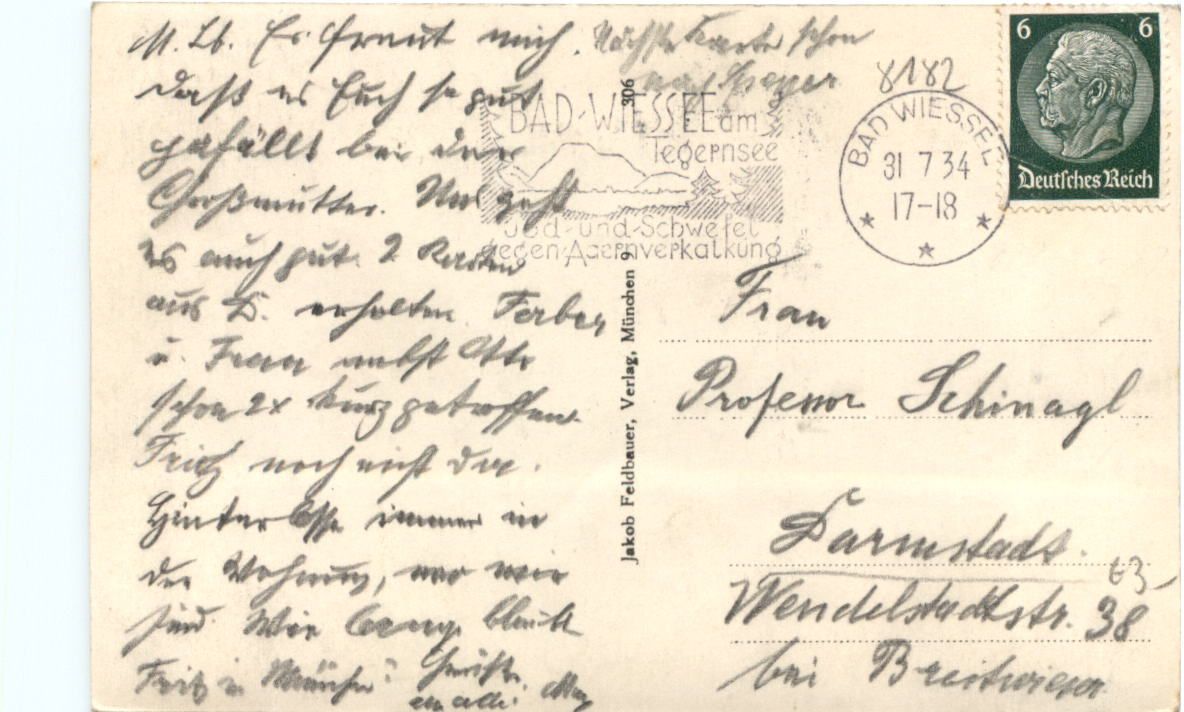 M. Lb. Es freut mich,
daß es Euch so gut
gefällt bei der
Großmutter. Uns geht
es auch gut. 2 Karten
aus D. erhalten. Ferber
u. Frau nebst Otto
schon 2x kurz getroffen.
Fritz noch nicht da.
Hinterlasse immer in
der Wohnung, wo wir
sind. Wie lange bleibt
Fritz in München?
an alle.
Nächste Karte schon
BAD-WIESSEE am
Tegernsee
Jod-und-Schwefel
gegen-Adernverkalkung
8182
BAD WIESSEE
31 7 34
17-18
6 6
Deutsches Reich
306
Jakob Feldbauer, Verlag, München 9
Frau
Professor Schinagl
Darmstadt.
Wendelstadtstr. 38
bei Breitwieser
63